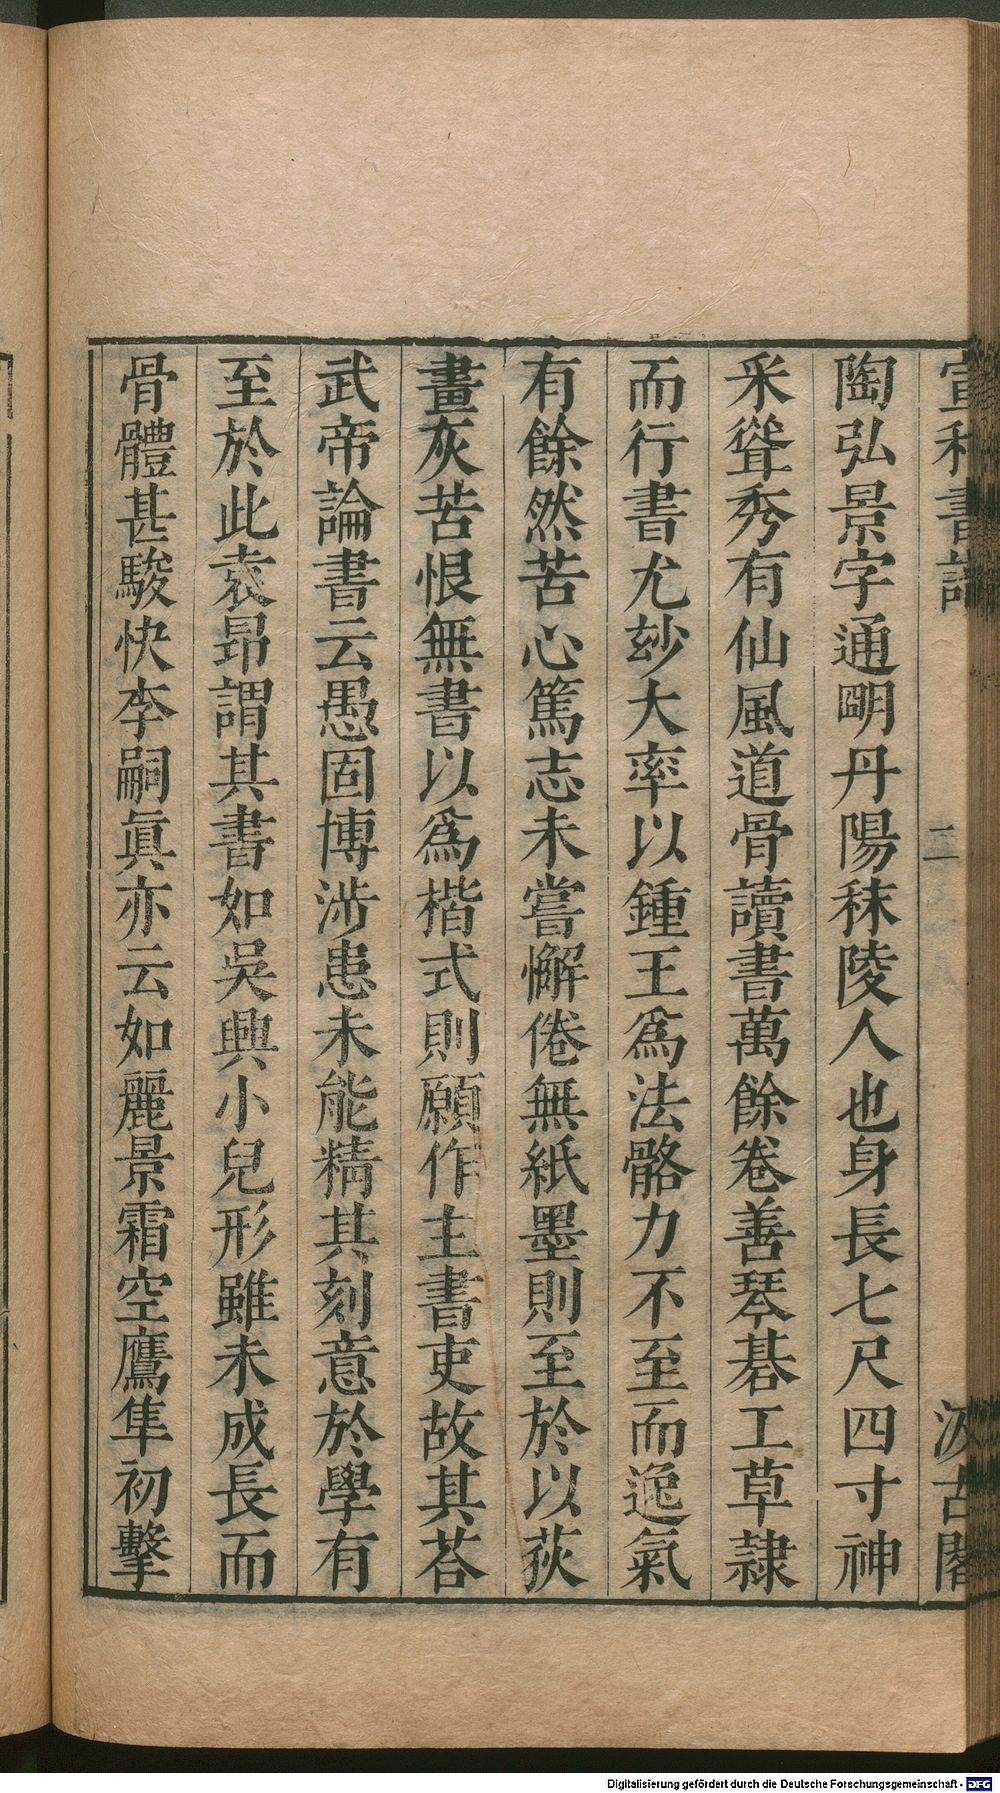 宣和書譜 二 汲古閣
陶弘景字通明丹陽秣陵人也身長七尺四寸神
采聳秀有仙風道骨讀書萬餘卷善琴棊工草隷
而行書尤玅大率以鍾王爲法骼力不至而逸氣
有餘然苦心篤志未嘗懈倦無紙墨則至於以荻
畫灰苦恨無書以爲楷式則願作主書吏故其荅
武帝論書云愚固博涉患未能精其刻意於學有
至於此袁昂謂其書如吳興小兒形雖未成長而
骨體甚駿快李嗣眞亦云如麗景霜空鷹隼初擊
Digitalisierung gefördert durch die Deutsche Forschungsgemeinschaft - DFG